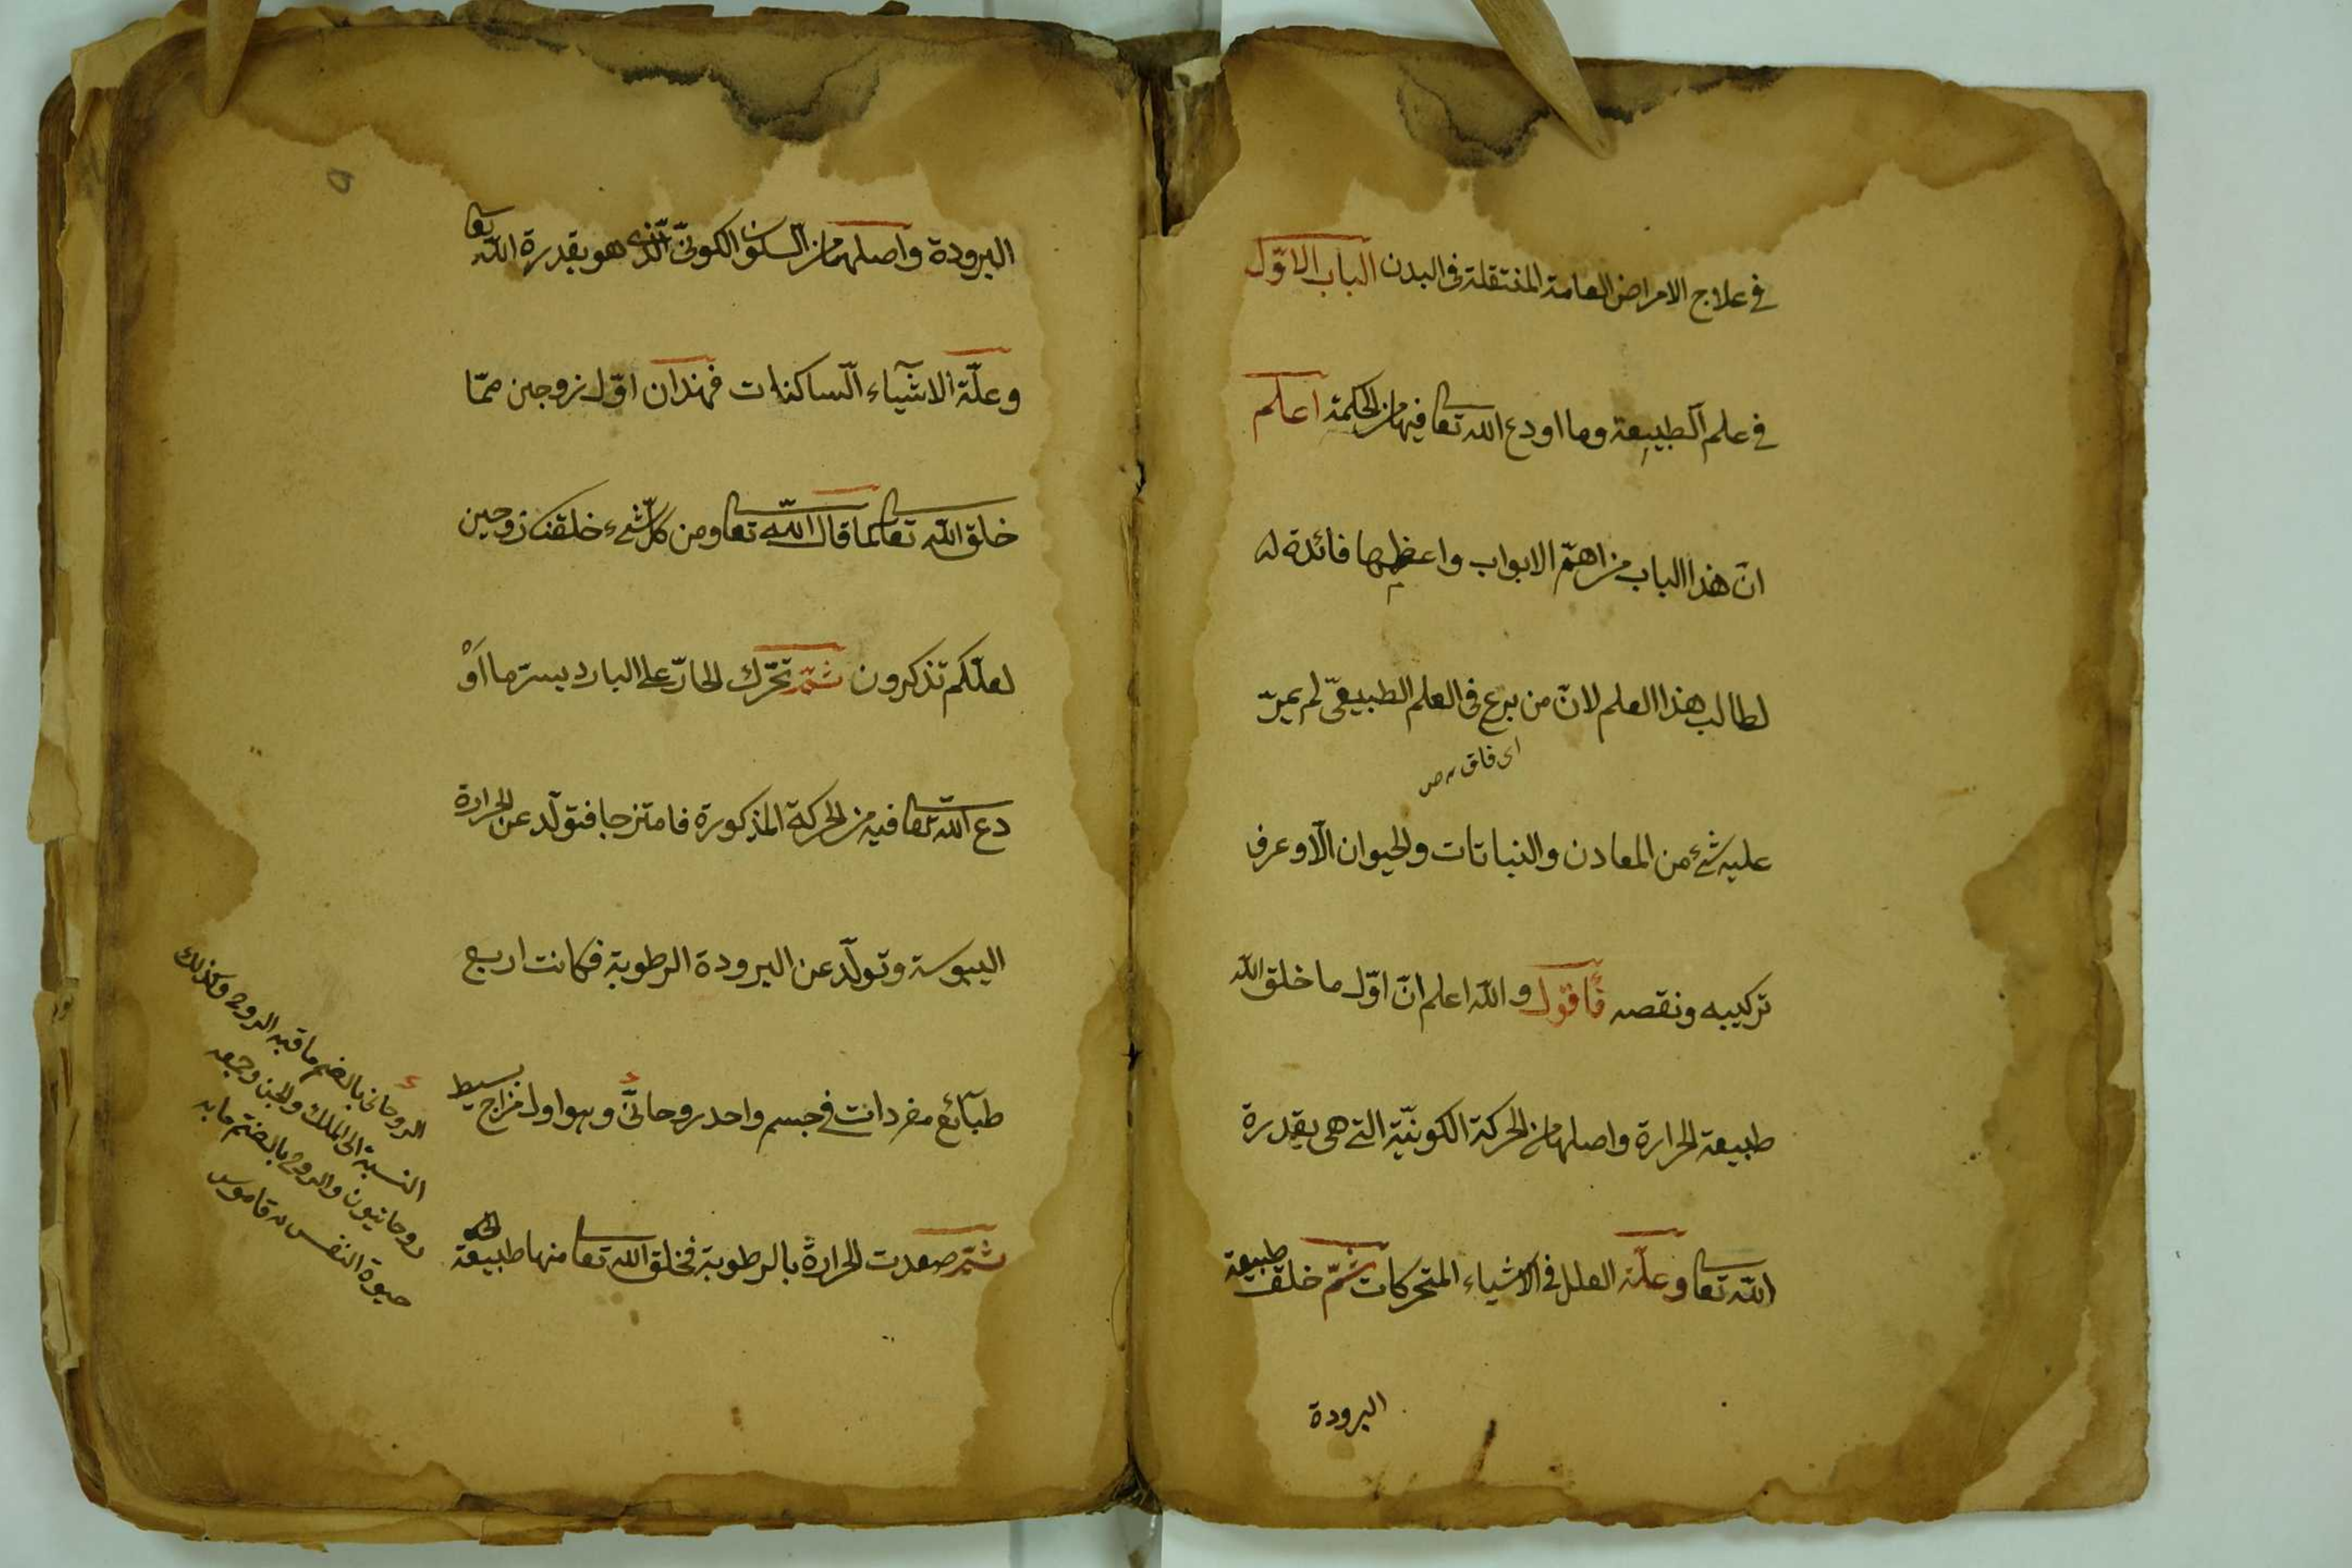 في علاج الامراض العامة المنتقلة في البدن الباب الاوّل
في علم الطبيعة وما اودع الله تعا فيها من الحكمة اعلم
انّ هذا الباب من اهمّ الابواب واعظمها فائدة له
لطالب هذا العلم لانّ من برع في العلم الطبيعيّ لم يمرّ
اى فاق
عليه شئ من المعادن والنباتات والحيوان الّا وعرف
تركيبه ونقصه فأقول والله اعلم انّ اوّل ما خلق الله
طبيعة الحرارة واصلها من الحركة الكونيّة التي هي بقدرة
الله تعا وعلّة العلل في الاشياء المتحركات ثمّ خلق طبيعة
البرودة
البرودة واصلها من السكون الكونيّ الّذي هو بقدرة الله تعا
وعلّة الاشيآء السّاكنات فهذان اوّل زوجين ممّا
خلق الله تعا كما قال الله تعا ومن كلّ شيء خلقنا زوجين
لعلّكم تذكرون ثمّ تحرّك الحارّ على البارد بسرّ ما اَوْ
دع الله تعا فيه من الحركة المذكورة فامتزجا فتولّد عن الحرارة
اليبوسة وتولّد عن البرودة الرطوبة فكانت اربع
طبآئع مفردات في جسم واحد روحانيّ وهو اول مزاج بسيط
ثمّ صعدت الحرارة بالرطوبة فخلق الله تعا منها طبيعة
الروحاني بالضم ما فيه الروح وكذلك
النسبة الى الملك والجن وجمعه
روحانيون والروح بالضم ما به
حيوة النفس قاموس